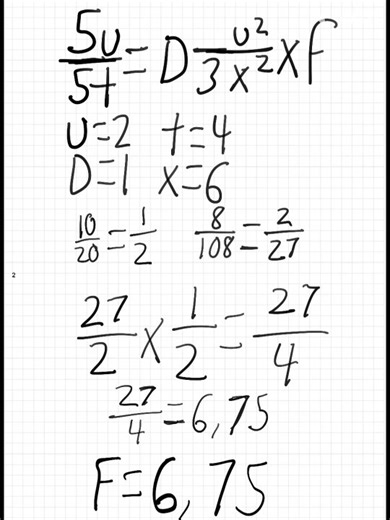 5u/5t = D u²/3x² x F
u=2 t=4
D=1 x=6
10/20 = 1/2 8/108 = 2/27
2
27/2 x 1/2 = 27/4
27/4 = 6,75
F=6,75